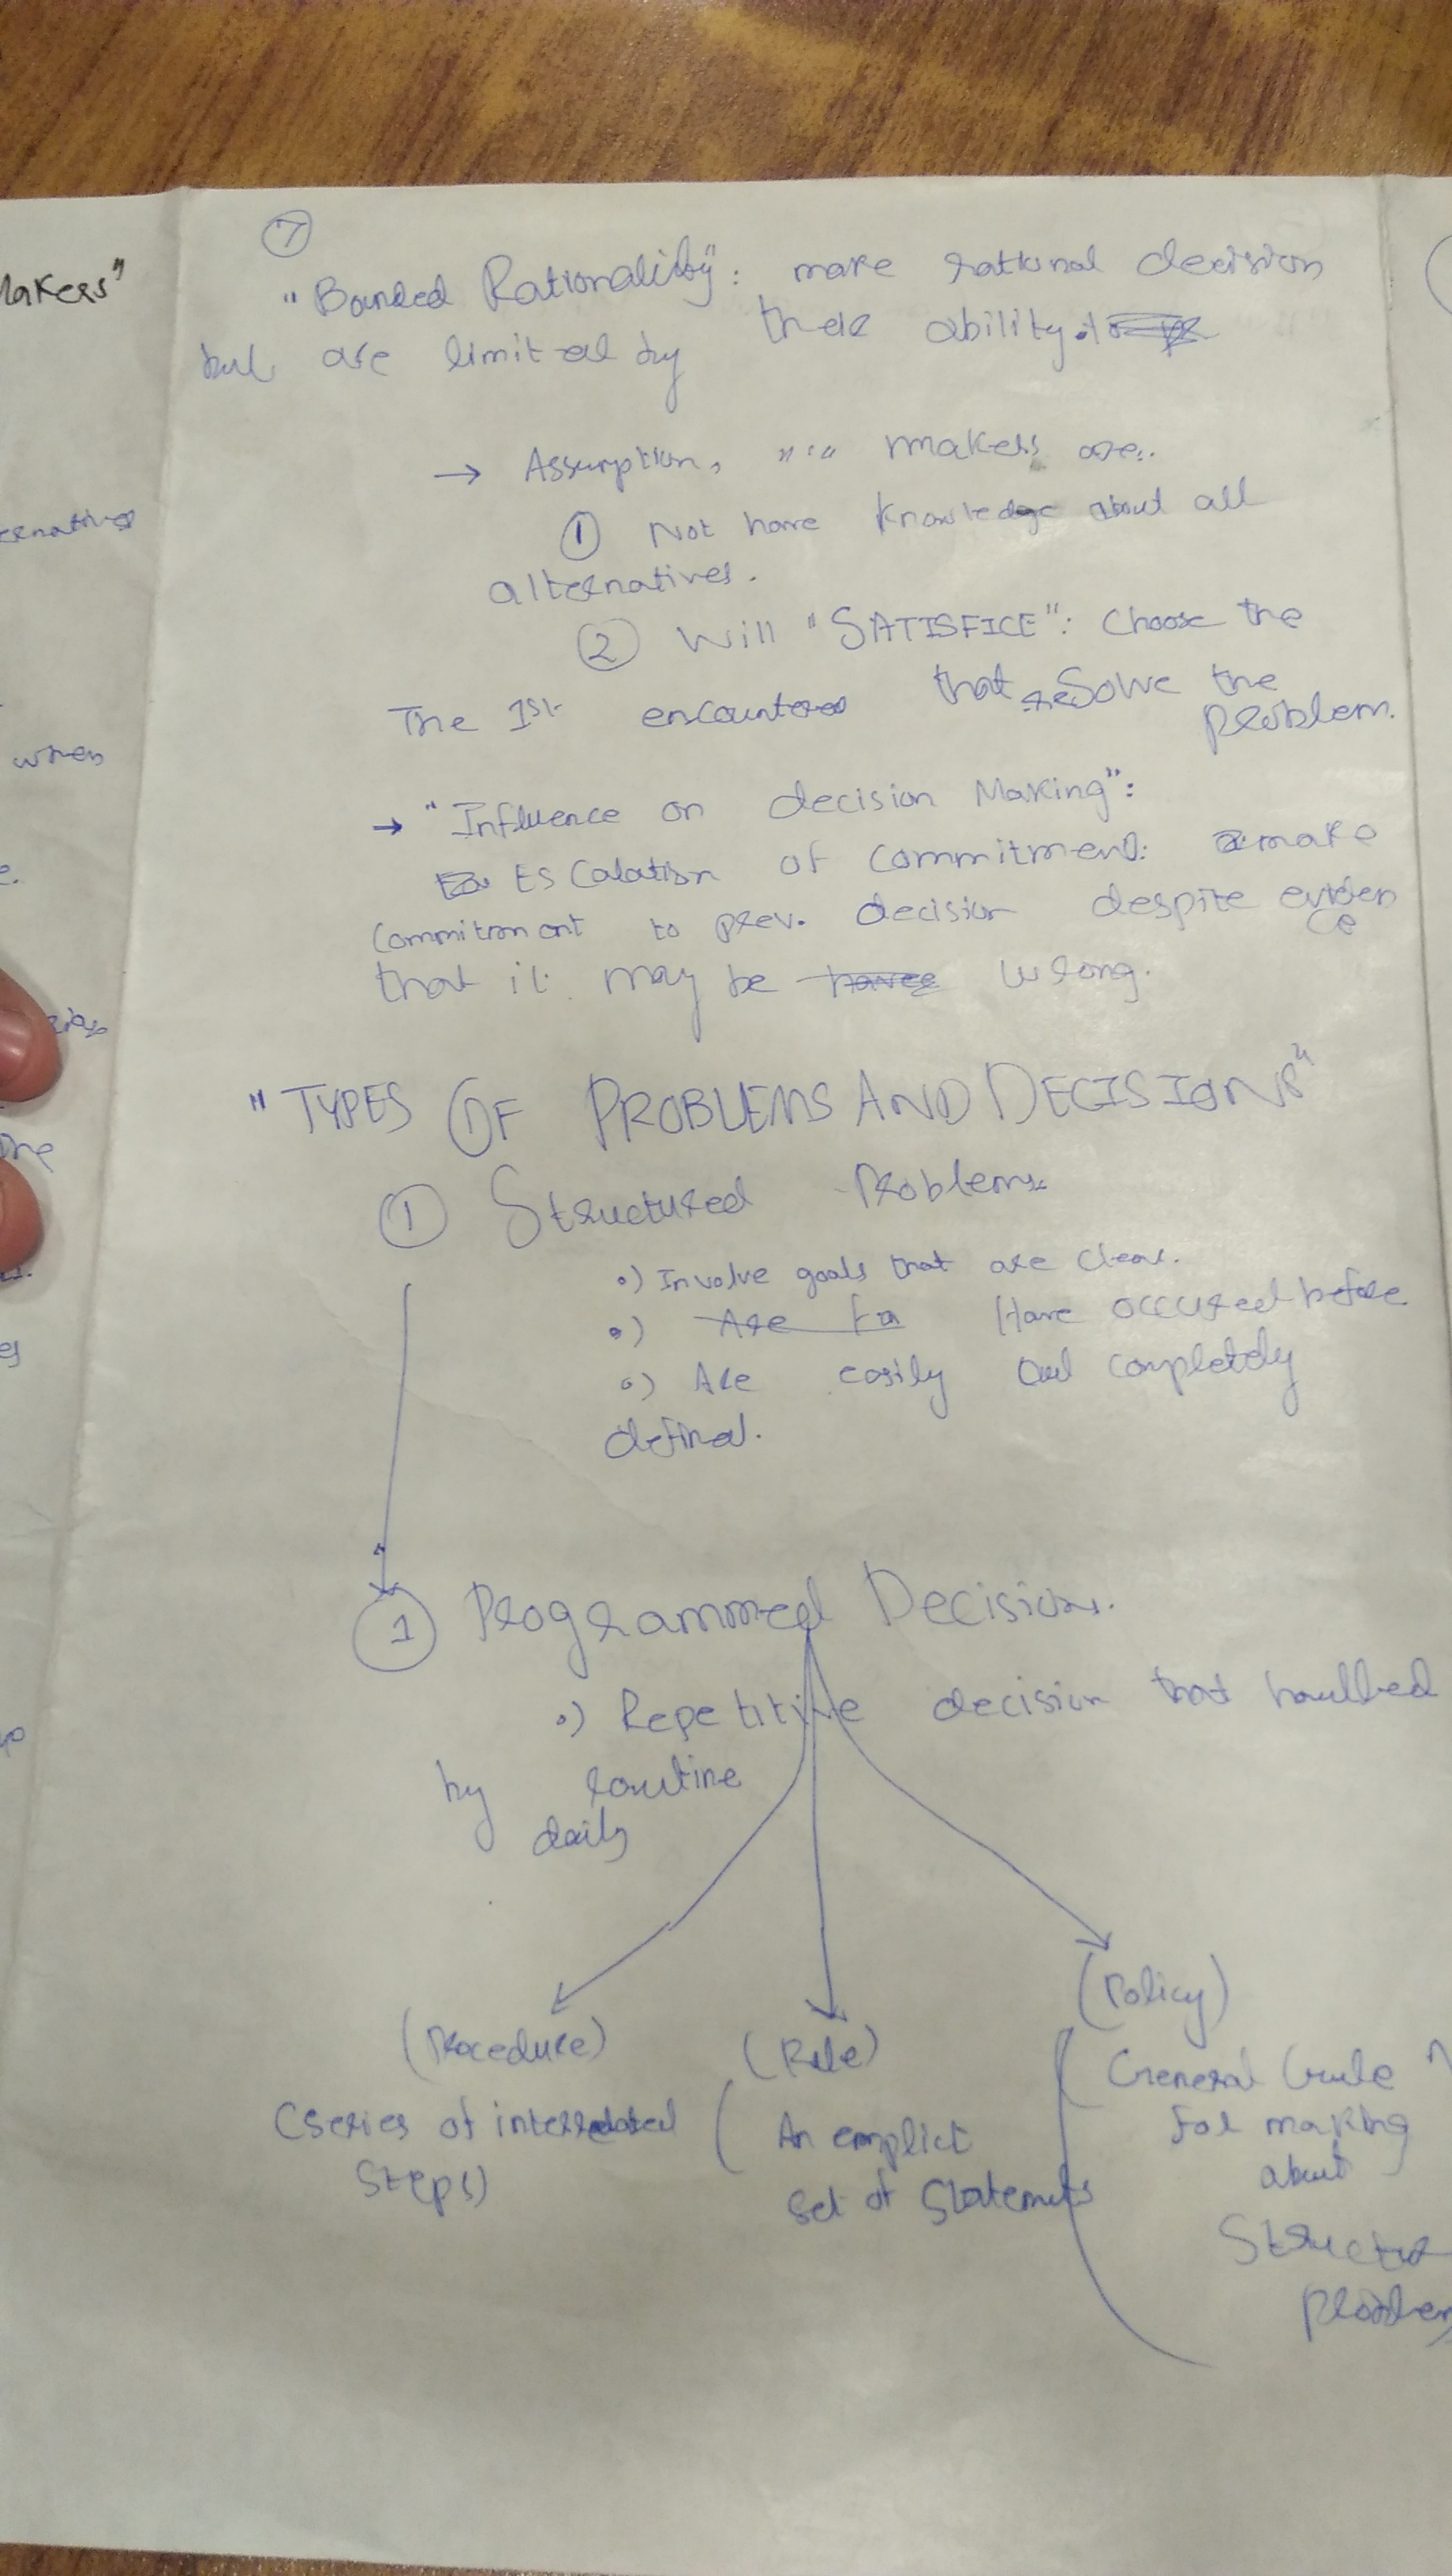 Makers"
ernatives
when
e.
the
es
7
"Bounded Rationality": make rational decision
but are limited by their ability.
→ Assumption, "i" makers are:
① Not have knowledge about all
alternatives.
② Will "SATISFICE": Choose the
The 1st encountered that resolve the
problem.
→ "Influence on decision Making":
Escalation of commitment: make
commitment to prev. decision despite eviden
ce
that it may be wrong.
"TYPES OF PROBLEMS AND DECISIONS"
① Structured Problems
•) Involve goals that are clear.
•) Have occured before
•) Are easily and completely
defined.
① Programmed Decision.
•) Repetitive decision that handled
by routine
daily
(Policy)
(Procedure) (Rule)
General Guide
(series of interrelated
steps)
( An emplict
set of statements
for making
about
Structur
problem